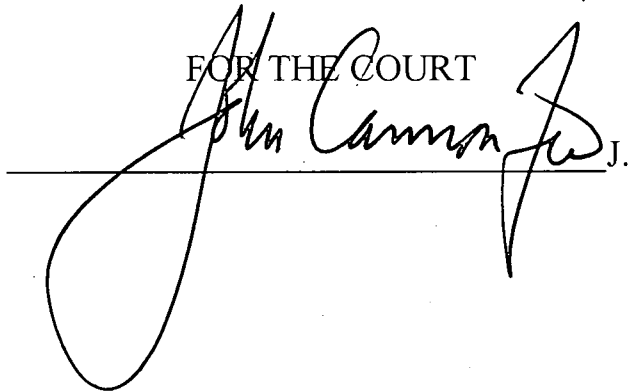 FOR THE COURT
John Cannon J.